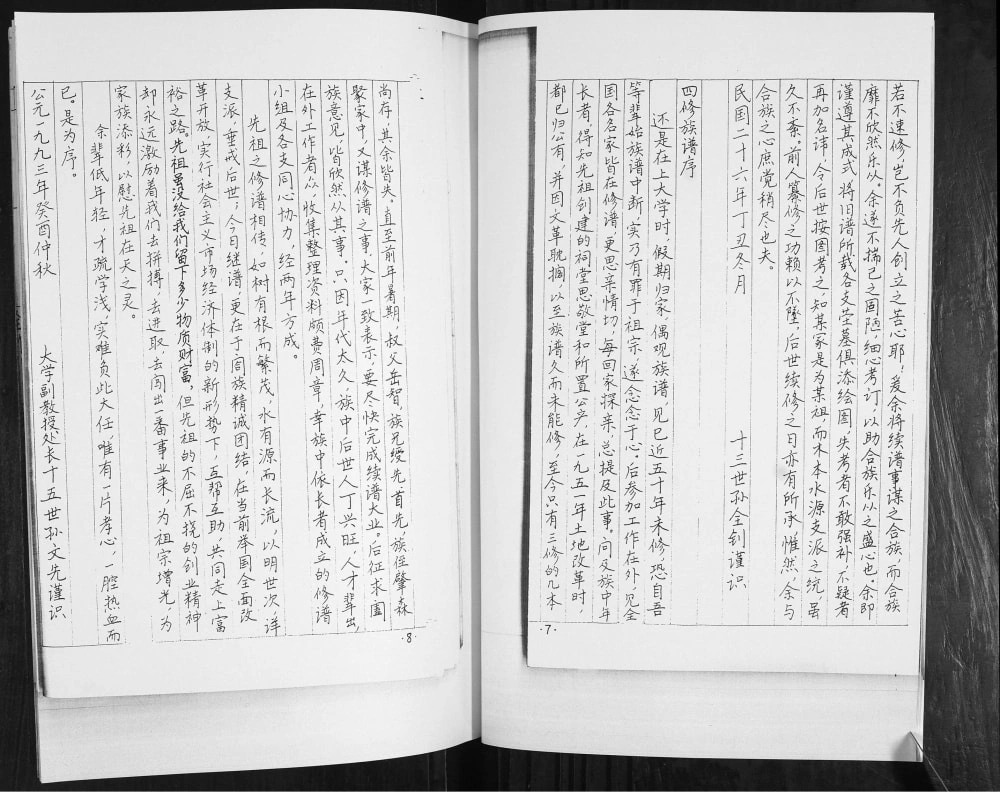 若不速修，岂不负先人创立之苦心耶！爰余将续谱事谋之合族，而合族
靡不欣然乐从。余遂不揣己之固陋，细心考订，以助合族乐从之盛心也。余即
谨遵其成式将旧谱所载各支茔墓俱添绘图，失考者不敢强补，不疑者
再加名讳，令后世按图考之知某家是为某祖而木本水源支派之统虽
久不紊。前人纂修之功赖以不坠，后世续修之日亦有所承惟然，余与
合族之心庶觉稍尽也夫。
民国二十六年丁丑冬月
十三世孙全钊谨识
四修族谱序
还是在上大学时，假期归家，偶观族谱，见已近五十年未修，恐自吾
等辈始族谱中断，实乃有罪于祖宗，遂念念于心。后参加工作在外，见全
国各名家皆在修谱，更思亲情切，每回家探亲，总提及此事。问及族中年
长者，得知先祖创建的祠堂思敬堂和所置公产，在一九五一年土地改革时，
都已归公有，并因文革耽搁，以至族谱久而未能修，至今只有三修的几本
·7·
尚存，其余皆失。直至前年暑期，叔父岳智，族兄绶先首先，族侄肇森
聚家中，又谋修谱之事，大家一致表示，要尽快完成续谱大业。后征求阖
族意见，皆欣然从其事。只因年代太久，族中后世人丁兴旺，人才辈出，
在外工作者众，收集整理资料颇费周章，幸族中依长者成立的修谱
小组及各支同心协力，经两年方成。
先祖之修谱相传，如树有根而繁茂，水有源而长流，以明世次，详
支派，垂戒后世，今日继谱，更在于阖族精诚团结，在当前举国全面改
革开放，实行社会主义市场经济体制的新形势下，互帮互助，共同走上富
裕之路。先祖虽没给我们留下多少物质财富，但先祖的不屈不挠的创业精神
却永远激励着我们去拼搏，去进取，去闯出一番事业来，为祖宗增光，为
家族添彩，以慰先祖在天之灵。
余辈低年轻，才疏学浅，实难负此大任，唯有一片孝心，一腔热血而
已。是为序。
公元一九九三年癸酉仲秋
大学副教授处长十五世孙文先谨识
·8·